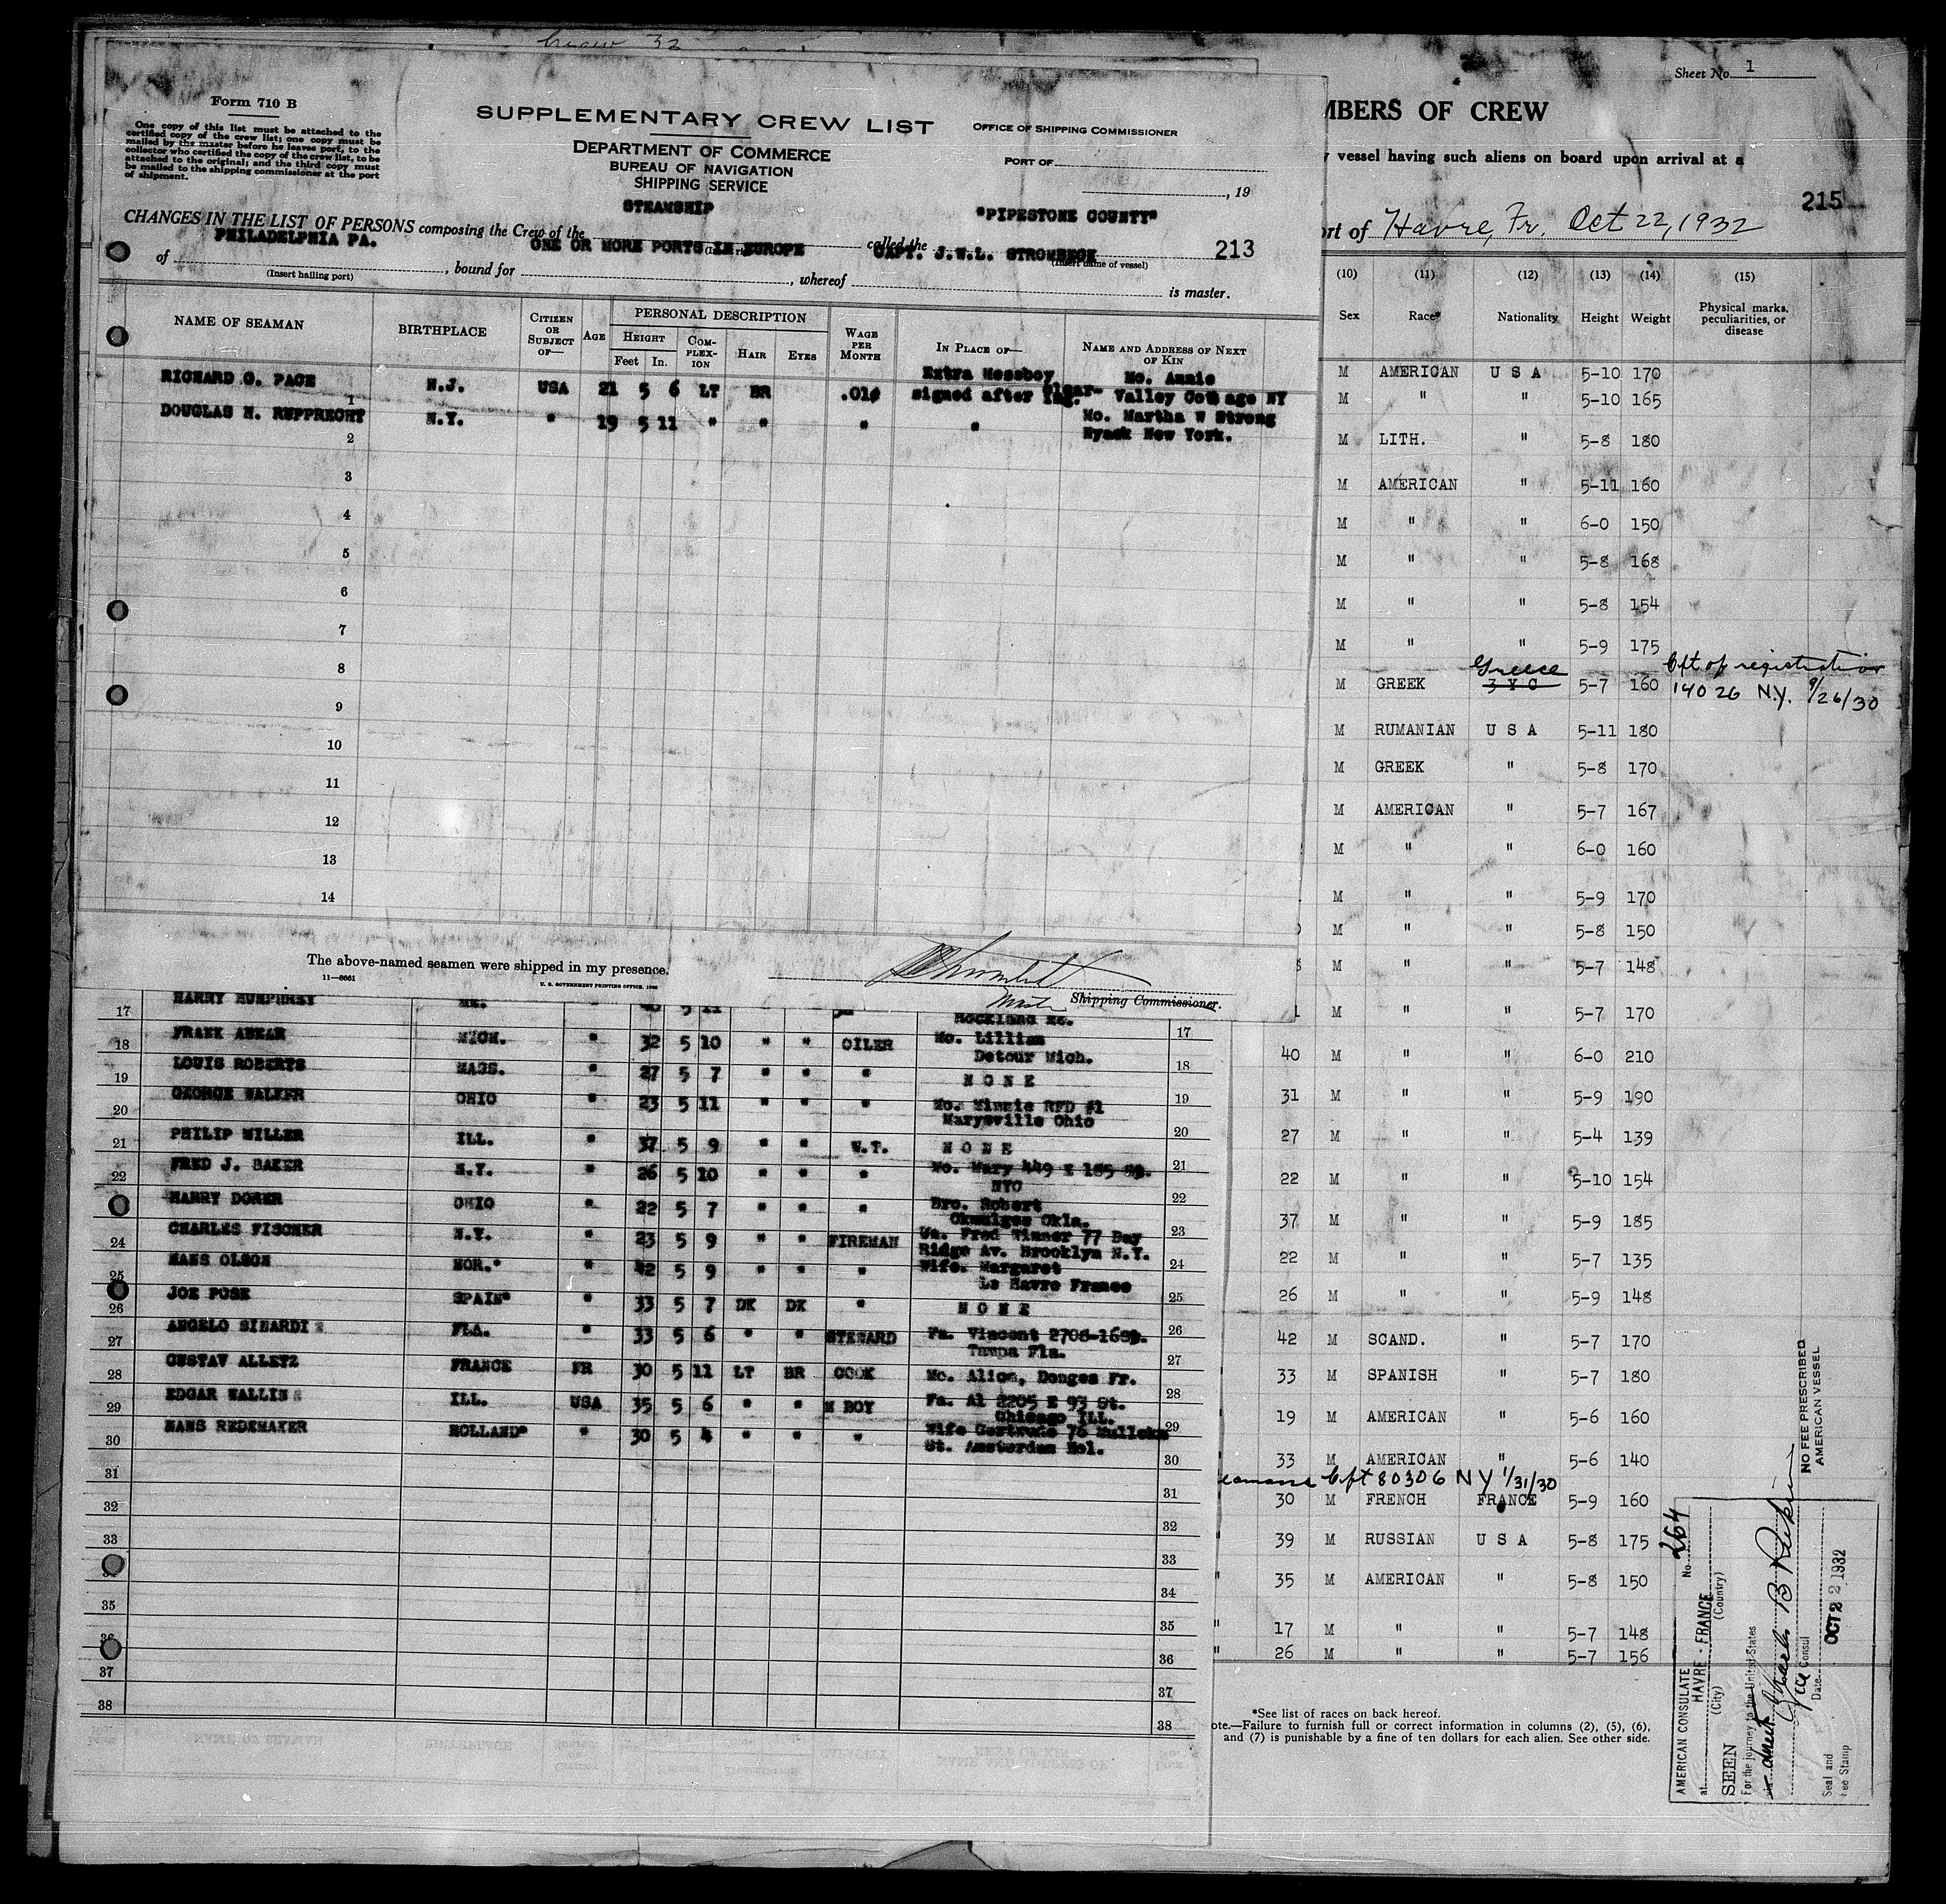 Crew 32
Form 710 B
One copy of this list must be attached to the
certified copy of the crew list; one copy must be
mailed by the master before he leaves port, to the
collector who certified the copy of the crew list, to be
attached to the original; and the third copy must
be mailed to the shipping commissioner at the port
of shipment.
SUPPLEMENTARY CREW LIST
DEPARTMENT OF COMMERCE
BUREAU OF NAVIGATION
SHIPPING SERVICE
OFFICE OF SHIPPING COMMISSIONER
PORT OF
, 19
STEAMSHIP "PIPESTONE COUNTY"
CHANGES IN THE LIST OF PERSONS composing the Crew of the called the
PHILADELPHIA PA. ONE OR MORE PORTS IN EUROPE CAPT. J.W.L. STROMBECK 213
of , bound for , whereof is master.
(Insert hailing port) (Insert name of vessel)
NAME OF SEAMAN BIRTHPLACE CITIZEN OR SUBJECT OF— AGE PERSONAL DESCRIPTION HEIGHT Feet In. COMPLEXION HAIR EYES WAGE PER MONTH IN PLACE OF— NAME AND ADDRESS OF NEXT OF KIN
1 RICHARD G. PAGE N.J. USA 21 5 6 LT BR .01¢ Extra Messboy signed after Clear-ing. Mo. Annie Valley Cottage NY
2 DOUGLAS H. RUPPRECHT N.Y. " 19 5 11 " " " " Mo. Martha W Strong Nyack New York.
3
4
5
6
7
8
9
10
11
12
13
14
The above-named seamen were shipped in my presence.
11—8661
U. S. GOVERNMENT PRINTING OFFICE
Master Shipping Commissioner.
17 HARRY HUMPHREY ME. 5 11 Rockland Me. 17
18 FRANK ABEAR MICH. " 32 5 10 " " OILER Mo. Lillian Detour Mich. 18
19 LOUIS ROBERTS MASS. " 27 5 7 " " " N O N E 19
20 GEORGE WALKER OHIO " 23 5 11 " " " Mo. Minnie RFD #1 Marysville Ohio 20
21 PHILIP MILLER ILL. " 37 5 9 " " W.T. N O N E 21
22 FRED J. BAKER N.Y. " 26 5 10 " " " Mo. Mary 449 E 185 St. NYC 22
HARRY DORER OHIO " 22 5 7 " " " Bro. Robert Okmulgee Okla. 23
24 CHARLES FISCHER N.Y. " 23 5 9 " " FIREMAN Un. Fred Winner 77 Bay Ridge Av. Brooklyn N.Y. 24
25 HANS OLSON NOR." " 42 5 9 " " " Wife. Margaret Le Havre France 25
26 JOE POSE SPAIN" " 33 5 7 DK DK " N O N E 26
27 ANGELO SINARDI FLA. " 33 5 6 " " STEWARD Fa. Vincent Tampa Fla. 27
28 GUSTAV ALLETZ FRANCE FR 30 5 11 LT BR COOK Mo. Alice, Donges Fr. 28
29 EDGAR WALLIN ILL. USA 35 5 6 " " M BOY Fa. Al 2205 E 93 St. Chicago ILL. 29
30 HANS REDEMAKER HOLLAND" " 30 5 4 " " " Wife Gertrude 76 St. Amsterdam Hol. 30
31 31
32 32
33 33
34
35 35
36 36
37 37
38 38
Sheet No. 1
MBERS OF CREW
vessel having such aliens on board upon arrival at a
215
rt of Havre, Fr. Oct 22, 1932
(10) (11) (12) (13) (14) (15)
Sex Race* Nationality Height Weight Physical marks, peculiarities, or disease
M AMERICAN U S A 5-10 170
" " 5-10 165
M LITH. " 5-8 180
M AMERICAN " 5-11 160
M " " 6-0 150
M " " 5-8 168
M " " 5-8 154
M " " 5-9 175
Greece Cft of registration
M GREEK 5-7 160 14026 N.Y. 9/26/30
M RUMANIAN U S A 5-11 180
M GREEK " 5-8 170
M AMERICAN " 5-7 167
M " " 6-0 160
M " " 5-9 170
M " " 5-8 150
M " " 5-7 148
M " " 5-7 170
40 M " " 6-0 210
31 M " " 5-9 190
27 M " " 5-4 139
22 M " " 5-10 154
37 M " " 5-9 185
22 M " " 5-7 135
26 M " " 5-9 148
42 M SCAND. " 5-7 170
33 M SPANISH " 5-7 180
19 M AMERICAN " 5-6 160
33 M AMERICAN " 5-6 140
eamans Cft 80306 NY 1/31/30
30 M FRENCH FRANCE 5-9 160
39 M RUSSIAN U S A 5-8 175
35 M AMERICAN " 5-8 150
" 17 M " " 5-7 148
" 26 M " " 5-7 156
*See list of races on back hereof.
ote.—Failure to furnish full or correct information in columns (2), (5), (6),
and (7) is punishable by a fine of ten dollars for each alien. See other side.
NO FEE PRESCRIBED
AMERICAN VESSEL
No. 264
AMERICAN CONSULATE
at HAVRE - FRANCE
(City) (Country)
SEEN
For the journey to the United States
direct
Vice Consul
Date OCT 22 1932
Seal and
Fee Stamp